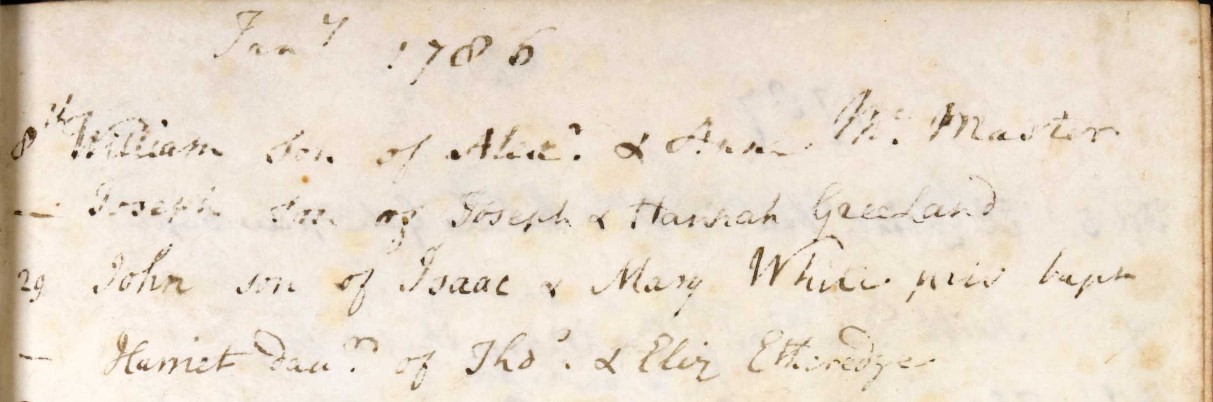 Jany 1786
8th William son of Alexr. & Anne Mc. Master
— Joseph son of Joseph & Hannah Greeland
29 John son of Isaac & Mary White priv bapt
— Harriet daur. of Thos. & Eliz Etheredge